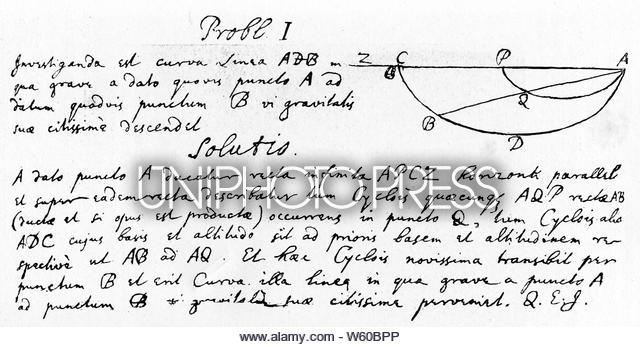 Probl. I
Investiganda est curva Linea ADB in
qua grave a dato quovis puncto A ad
datum quodvis punctum B vi gravitatis
suæ citissimè descendet
Z C P A
B Q
B D
Solutio.
A dato puncto A ducatur recta infinita APCZ horizonti parallela
et super eadem recta describatur tum Cyclois quæcunq; AQP rectæ AB
(ductæ et si opus est productæ) occurrens in puncto Q, tum Cyclois alia
ADC cujus basis et altitudo sit ad prioris basem et altitudinem re-
spectivè ut AB ad AQ. Et hæc Cyclois novissima transibit per
punctum B et erit Curva illa linea in qua grave a puncto A
ad punctum B vi gravitatis suæ citissime perveniet. Q. E. I.
UNIPHOTO PRESS
alamy stock photo
W60BPP
www.alamy.com